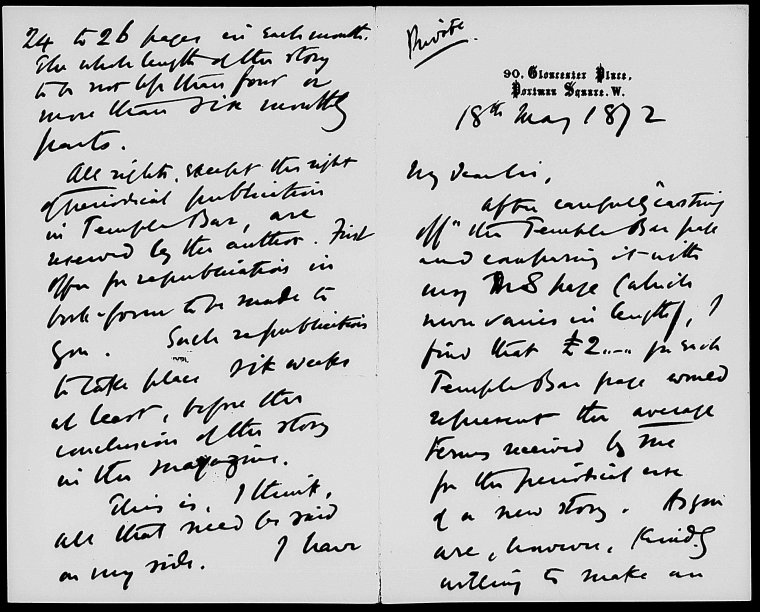 24 to 26 pages in each month.
The whole length of the story
to be not less than four or
more than six monthly
parts.
All rights, except the right
of periodical publication
in Temple Bar, are
reserved by the author. First
offer for republication in
book-form to be made to
you. Such republication
to take place six weeks
at least, before the
conclusion of the story
in the magazine.
This is, I think,
all that need be said
on my side. I have
Private.
90, Gloucester Place,
Portman Square. W.
18th May 1872
My dear Sir,
After carefully "casting
off" the Temple Bar page
and comparing it with
my MS page (which
never varies in length), I
find that £2..-.- for each
Temple Bar page would
represent the average
terms received by me
for the periodical use
of a new story. As you
are, however, kindly
willing to make an